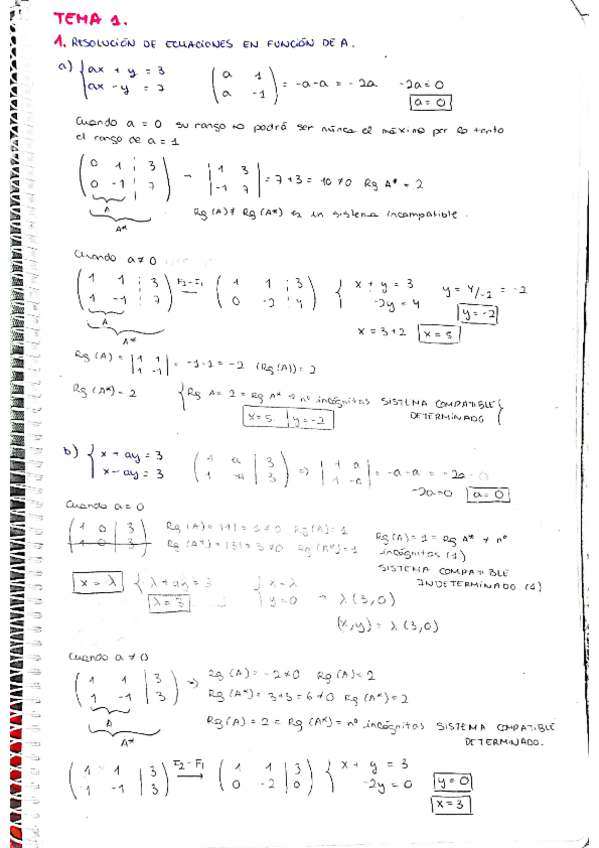 TEMA 1.
1. RESOLUCIÓN DE ECUACIONES EN FUNCIÓN DE A.
a) { ax + y = 3 ( a 1 ) = -a-a = -2a -2a=0
ax - y = 7 a -1 a = 0
Cuando a = 0 su rango no podrá ser nunca el máximo por lo tanto
el rango de a = 1
( 0 1 | 3 ) → | 1 3 | = 7+3 = 10 ≠0 Rg A* = 2
0 -1 | 7 -1 7
A
A*
Rg (A) ≠ Rg (A*) es un sistema incompatible.
Cuando a≠0
( 1 1 | 3 ) F2-F1 → ( 1 1 | 3 ) { x + y = 3 y = 4/-2 = -2
1 -1 | 7 0 -2 | 4 -2y = 4 y = -2
A x = 3+2 x = 5
A*
Rg (A) = | 1 1 | = -1-1 = -2 (Rg(A)) = 2
1 -1
Rg (A*) = 2 { Rg A = 2 = Rg A* = nº incógnitas SISTEMA COMPATIBLE
DETERMINADO }
x=5 | y=-2
b) { x + ay = 3 ( 1 a | 3 ) => | 1 a | = -a-a = -2a
x - ay = 3 1 -a | 3 1 -a -2a=0 a = 0
Cuando a = 0
( 1 0 | 3 ) Rg (A) = |1| = 1 ≠0 Rg(A)=1 Rg(A) = 1 = Rg A* ≠ nº
1 0 | 3 Rg (A*) = |3| = 3 ≠0 Rg (A*)=1 incógnitas (1)
SISTEMA COMPATIBLE
INDETERMINADO (1)
x = λ { λ + ay = 3 { x = λ
λ = 3 y = 0 → λ (3,0)
(x,y) = λ (3,0)
Cuando a ≠ 0
( 1 1 | 3 ) => Rg (A) = -2≠0 Rg(A)=2
1 -1 | 3 Rg (A*) = 3+3 = 6 ≠0 Rg (A*)=2
A
A*
Rg (A) = 2 = Rg (A*) = nº incógnitas SISTEMA COMPATIBLE
DETERMINADO.
( 1 1 | 3 ) F2-F1 → ( 1 1 | 3 ) { x + y = 3 y = 0
1 -1 | 3 0 -2 | 0 -2y = 0 x = 3